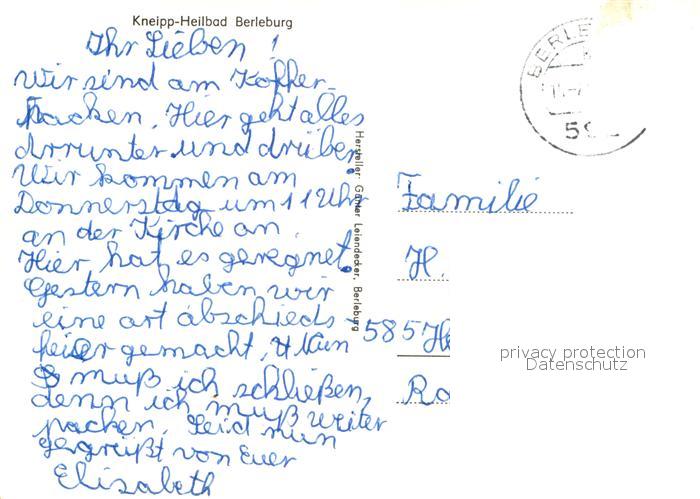 Kneipp-Heilbad Berleburg
Ihr Lieben!
Wir sind am Koffer-
packen. Hier geht alles
drrunter und drüber.
Wir kommen am
Donnerstag um 11 Uhr
an der Kirche an.
Hier hat es geregnet.
Gestern haben wir
eine art abschieds-
feier gemacht, Nun
muß ich schließen,
denn ich muß weiter
packen. Seid nun
gegrüßt von Euer
Elisabeth
Hersteller: Günter Leiendecker, Berleburg
BERLE
59
Familie
H.
585 He
Ro
privacy protection
Datenschutz